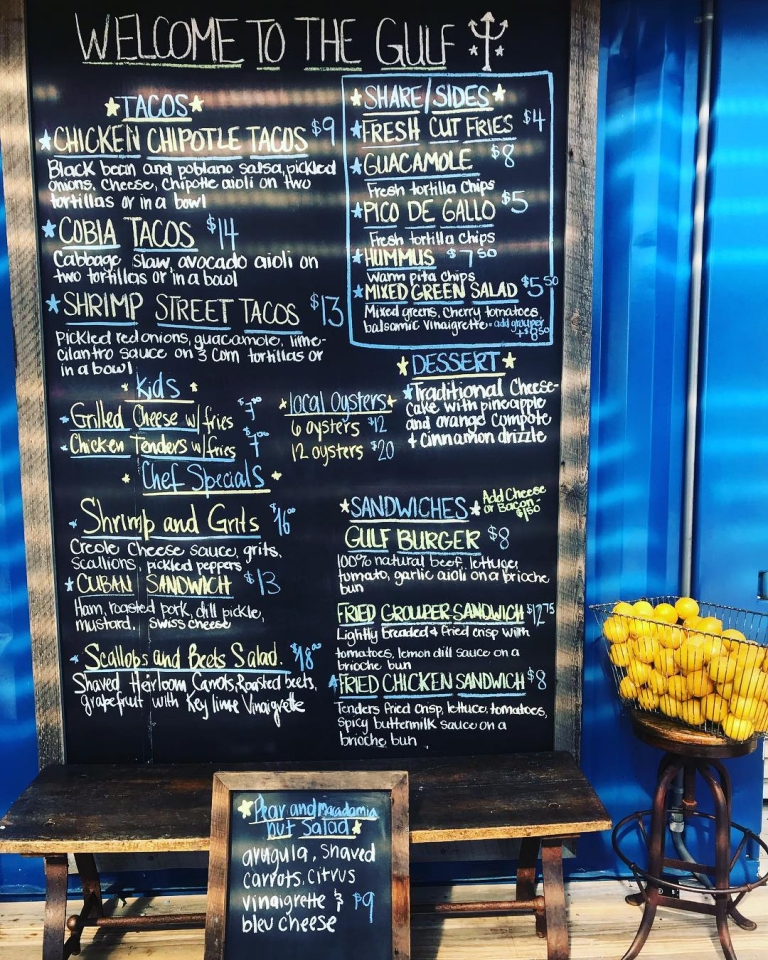 WELCOME TO THE GULF
TACOS
CHICKEN CHIPOTLE TACOS $9
Black bean and poblano salsa, pickled
onions, cheese, chipotle aioli on two
tortillas or in a bowl
COBIA TACOS $14
Cabbage slaw, avocado aioli on
two tortillas or in a bowl
SHRIMP STREET TACOS $13
Pickled red onions, guacamole, lime-
cilantro sauce on 3 corn tortillas or
in a bowl
SHARE/SIDES
FRESH CUT FRIES $4
GUACAMOLE $8
Fresh tortilla chips
PICO DE GALLO $5
Fresh tortilla chips
HUMMUS $7.50
warm pita chips
MIXED GREEN SALAD $5.50
Mixed greens, cherry tomatoes,
balsamic vinaigrette. add grouper
+$8.50
DESSERT
Traditional Cheese-
cake with pineapple
and orange compote
+ cinnamon drizzle
Kids
Grilled Cheese w/ fries
Chicken Tenders w/ fries
local Oysters
6 oysters $12
12 oysters $20
Chef Specials
Shrimp and Grits $16
Creole cheese sauce, grits,
scallions, pickled peppers
CUBAN SANDWICH $13
Ham, roasted pork, dill pickle,
mustard, swiss cheese
Scallops and Beets Salad. $18
Shaved Heirloom Carrots, Roasted beets,
grapefruit with Key lime Vinaigrette
SANDWICHES
Add Cheese
or Bacon -
$1.50
GULF BURGER $8
100% natural beef, lettuce,
tomato, garlic aioli on a brioche
bun
FRIED GROUPER SANDWICH $12.75
Lightly breaded & fried crisp with
tomatoes, lemon dill sauce on a
brioche bun
FRIED CHICKEN SANDWICH $8
Tenders fried crisp, lettuce, tomatoes,
spicy buttermilk sauce on a
brioche bun
Pear and Macadamia
nut Salad
arugula, shaved
carrots, citrus
vinaigrette & $9
bleu cheese